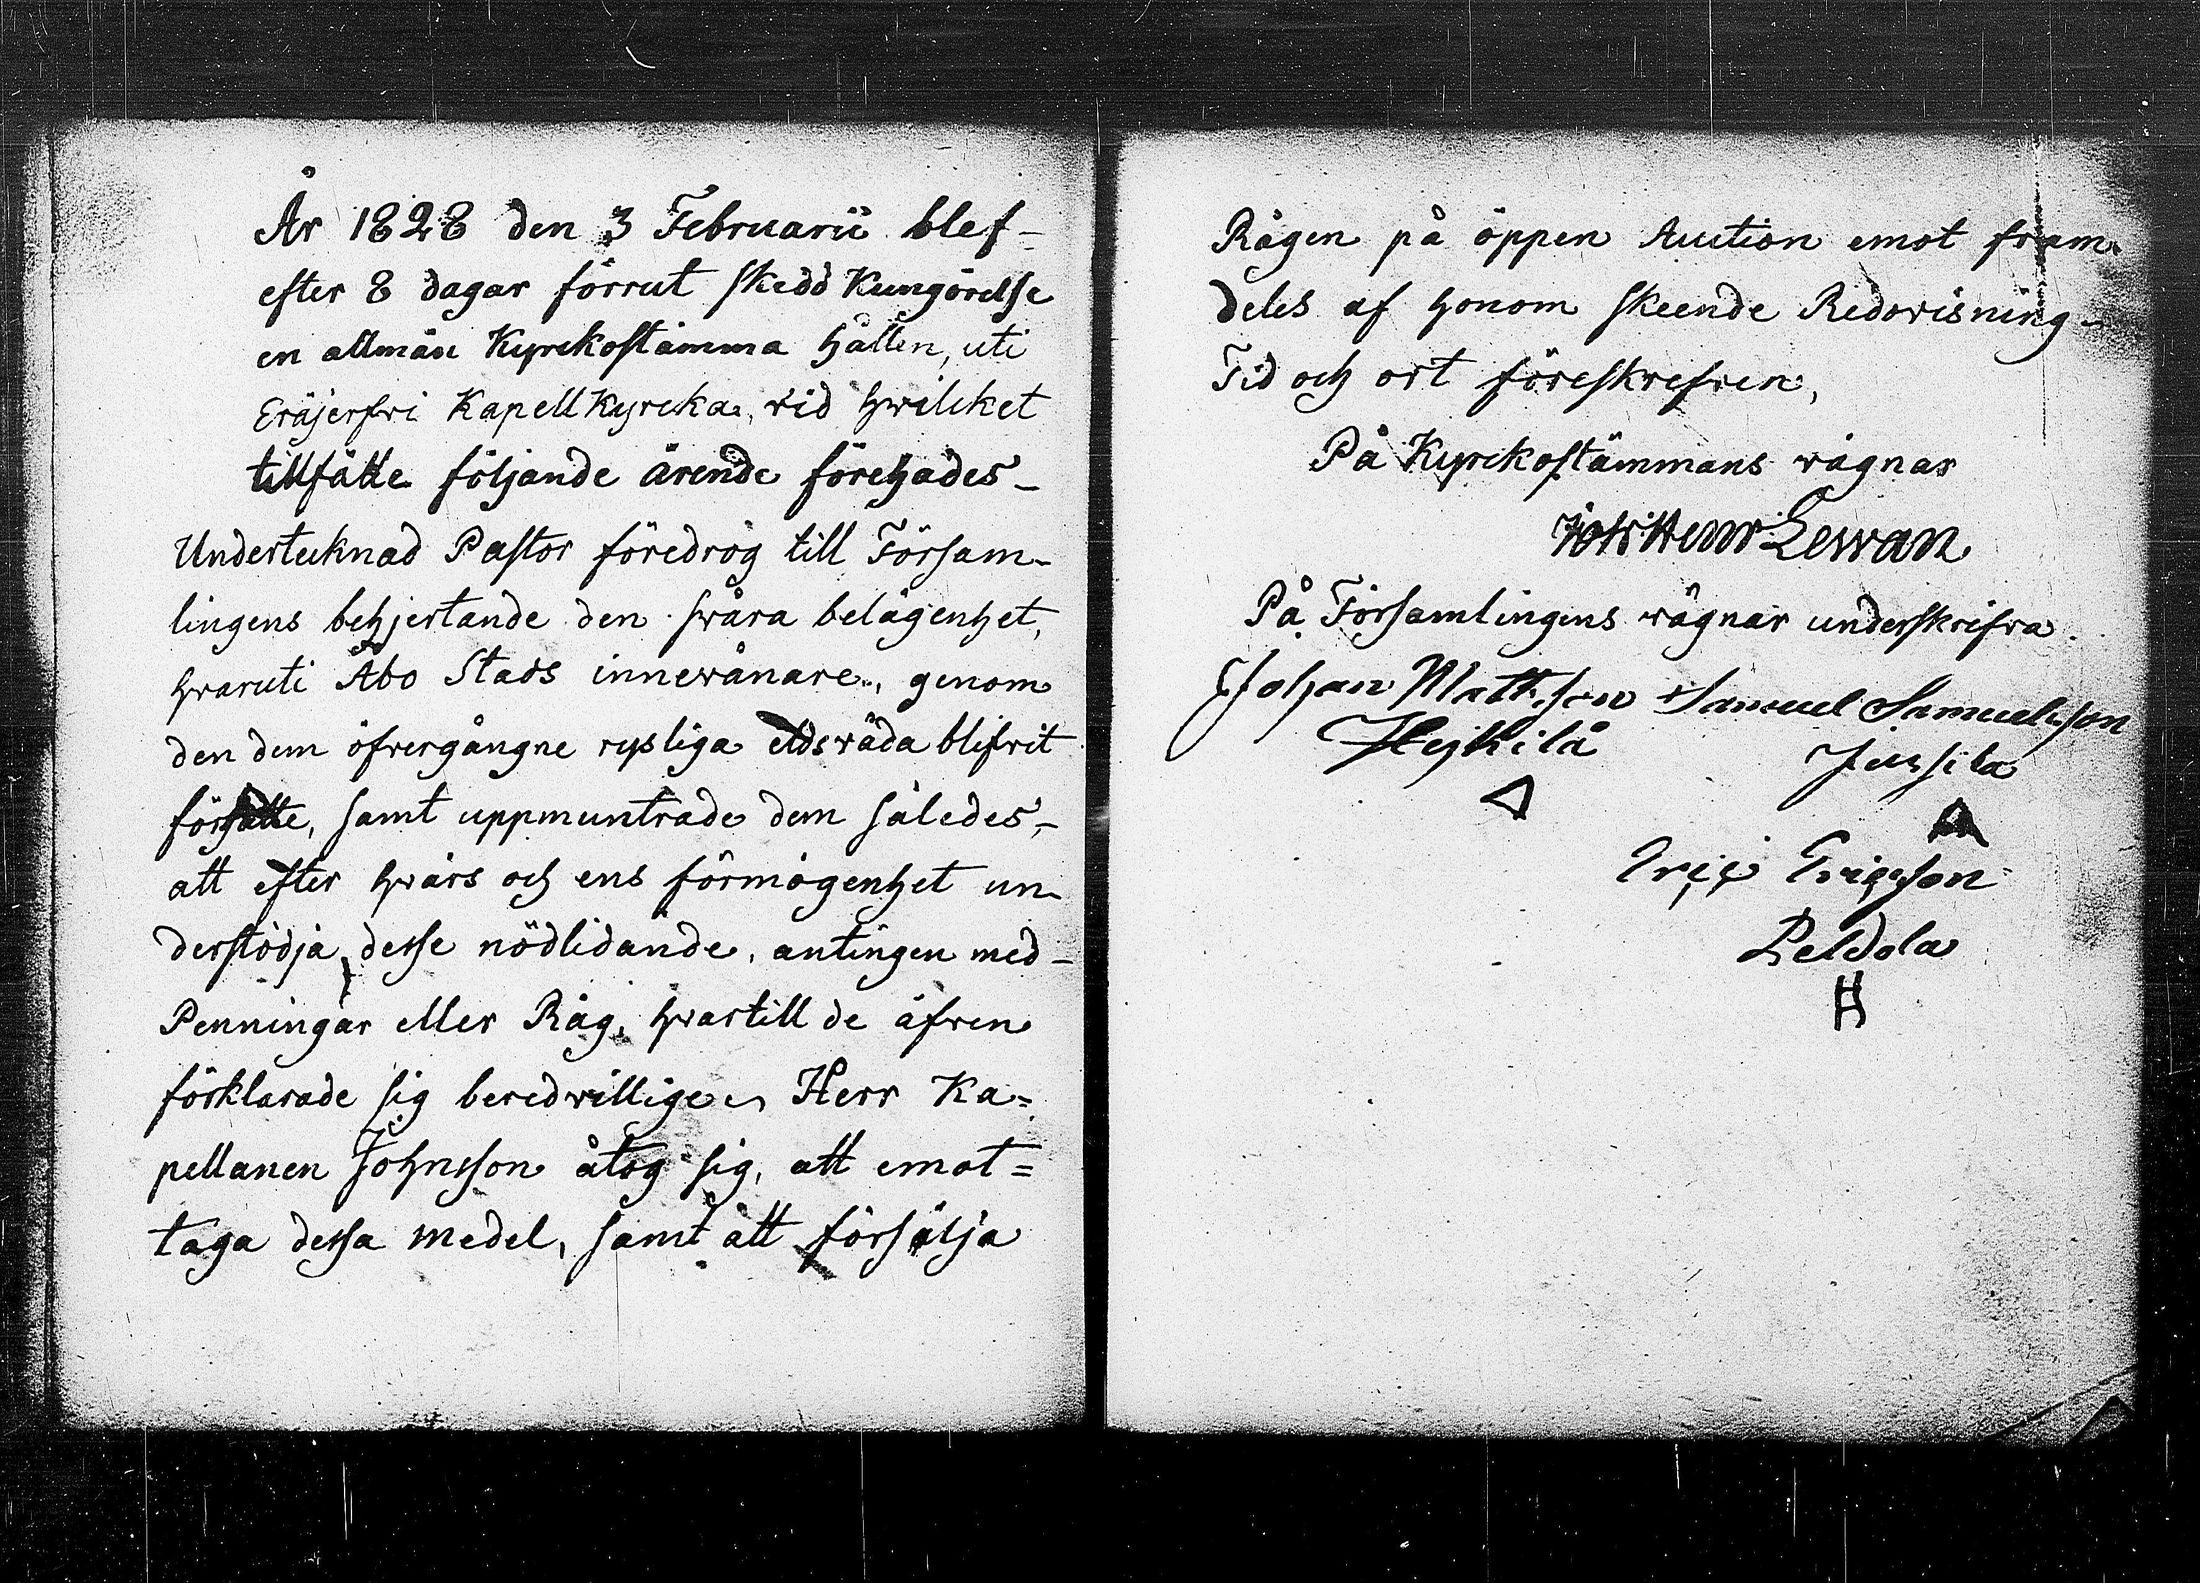 År 1828 den 3 Februarii blef-
efter 8 dagar förrut skedd Kungörelse
en allmän Kyrckostämma hållen, uti
Eräjerfwi Kapell Kyrcka, wid hwilcket
tillfälle följande ärende förehades-
Undertecknad Pastor föredrog till Församlingens
lingens behjertande den swåra belägenhet,
hwaruti Åbo Stads innewånare, genom
den dem öfwergångne rysliga eldswåda blifwit
försatte, samt uppmuntrade dem således,-
att efter hwars och ens förmögenhet un-
derstödja desse nödlidande, antingen med-
Penningar eller Råg, hwartill de äfwen
förklarade sig beredwillige. Herr Ka=
pellanen Johnsson åtog sig, att emot=
taga dessa medel, samt att försälja
Rågen på öppen Auction emot fram-
deles af honom skeende Redowisning-
Tid och ort föreskrefwen,
På Kyrckostämmans wägnar
Joh: Henr: Lewan
På Församlingens wägnar underskrifwa
Johan Mattsson Samuel Samuelsson
Hejkilä Jussila
Eric Ericsson
Peldola
H